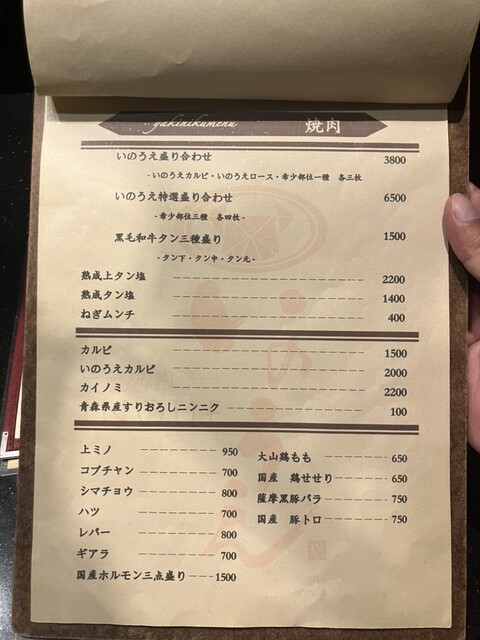 yakinikumenu 焼肉
いのうえ盛り合わせ 3800
-いのうえカルビ・いのうえロース・希少部位一種 各三枚-
いのうえ特選盛り合わせ 6500
-希少部位三種 各四枚-
黒毛和牛タン三種盛り 1500
-タン下・タン中・タン元-
熟成上タン塩 2200
熟成タン塩 1400
ねぎムンチ 400
カルビ 1500
いのうえカルビ 2000
カイノミ 2200
青森県産すりおろしニンニク 100
上ミノ 950
コプチャン 700
シマチョウ 800
ハツ 700
レバー 800
ギアラ 700
国産ホルモン三点盛り 1500
大山鶏もも 650
国産 鶏せせり 650
薩摩黒豚バラ 750
国産 豚トロ 750